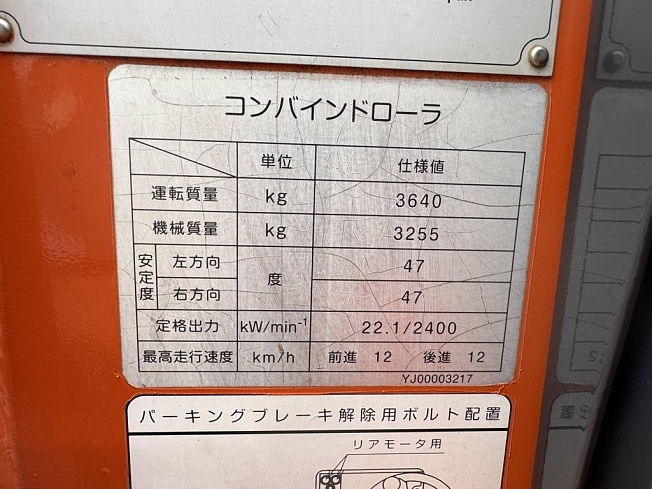 コンバインドローラ
単位 仕様値
運転質量 kg 3640
機械質量 kg 3255
安定度 左方向 度 47
右方向 47
定格出力 kW/min-1 22.1/2400
最高走行速度 km/h 前進 12 後進 12
YJ00003217
パーキングブレーキ解除用ボルト配置
リアモータ用